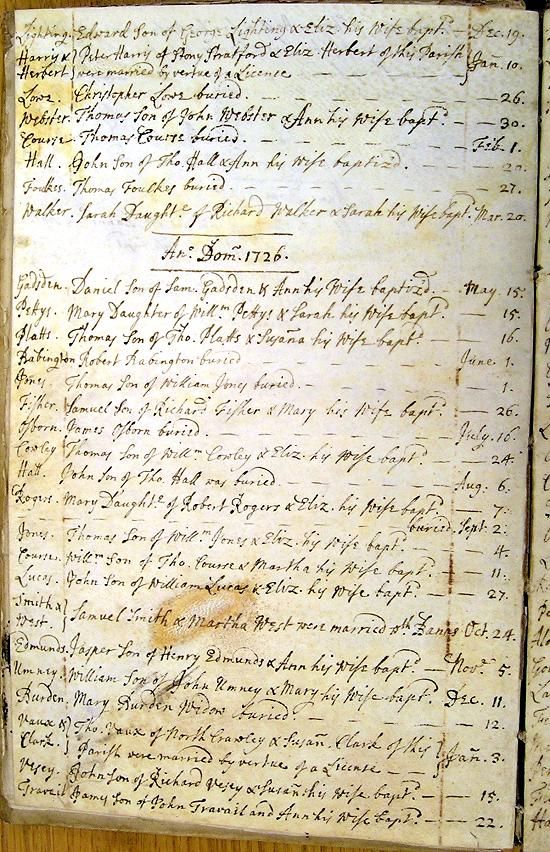 Lighting. Edward Son of George Lighting & Eliz. his Wife bapt.d — Dec. 19.
Harris & } Peter Harris of Stony Stratford & Eliz. Herbert of this Parish } Jan. 10.
Herbert } were married by vertue of a License
Lowe. Christopher Lowe buried. — 26.
Webster. Thomas Son of John Webster & Ann his Wife bapt.d — 30.
Course. Thomas Course buried — Feb. 1.
Hall. John Son of Tho. Hall & Ann his Wife baptizd. — 20.
Foulkes. Thomas Foulkes buried. — 27.
Walker. Sarah Daught.r of Richard Walker & Sarah his Wife bapt. Mar. 20.
An.o Dom. 1726.
Gadsden. Daniel Son of Sam. Gadsden & Ann his Wife baptizd. — May. 15.
Pettys. Mary Daughter of Will.m Pettys & Sarah his Wife bapt.d — 15.
Platts. Thomas Son of Tho. Platts & Susana his Wife bapt.d — 16.
Babington Robert Babington buried — June 1.
Jones. Thomas Son of William Jones buried. — 1.
Fisher. Samuel Son of Richard Fisher & Mary his Wife bapt.d — 26.
Osborn. James Osborn buried. — July. 16.
Cowley Thomas Son of Will.m Cowley & Eliz. his Wife bapt.d — 24.
Hall. John Son of Tho. Hall was buried. — Aug. 6.
Rogers. Mary Daught.r of Robert Rogers & Eliz. his Wife bapt.d — 7.
buried. Sept. 2.
Jones. Thomas Son of Will.m Jones & Eliz. his Wife bapt.d — 4.
Course. Will.m Son of Tho. Course & Martha his Wife bapt.d — 11.
Lucas. John Son of William Lucas & Eliz. his Wife bapt.d — 27.
Smith & }
West. } Samuel Smith & Martha West were married w.th Banns Oct. 24.
Edmunds. Jasper Son of Henry Edmunds & Ann his Wife bapt.d — Nov.r 5.
Umney. William Son of John Umney & Mary his Wife bapt.d Dec. 11.
Burden. Mary Burden Widow buried. — 12.
Vaux & } Tho. Vaux of North Crawley & Susan. Clark of this } Jan. 3.
Clark. } Parish were married by vertue of a License — }
Vesey. John Son of Richard Vesey & Susan his Wife bapt.d — 15.
Travail James Son of John Travail and Ann his Wife bapt.d — 22.